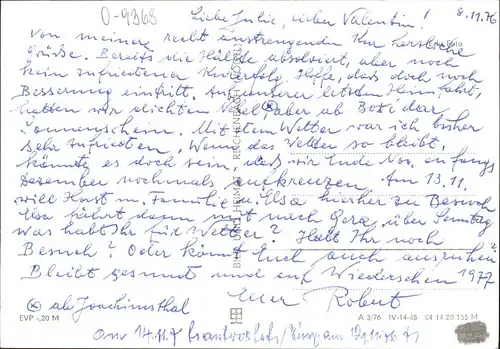 O-9368
8.11.76
Liebe Julie, lieber Valentin!
Von meiner recht anstrengenden Kur herzliche
Grüße. Bereits die Hälfte absolviert, aber noch
kein zufriedener Kurerfolg. Hoffe, daß doch noch
Besserung eintritt. An unserer letzten Heimfahrt,
hatten wir dichten Nebel, aber ab
Sonnenschein. Mit dem Wetter war ich bisher
sehr zufrieden. Wenn das Wetter so bleibt,
könnte es doch sein, daß wir Ende Nov. anfangs
Dezember nochmals aufkreuzen. Am 13.11.
will Horst m. Familie u. Elsa hierher zu Besuch
Elsa fährt dann mit nach Gera, über Sonntag
Was habt Ihr für Wetter? Habt Ihr noch
Besuch? Oder könnt Euch auch ausruhen?
Bleibt gesund und auf Wiedersehen 1977
Euer Robert
ab Joachimsthal
EVP -,20 M
A 3/76 IV-14-48 04 14 20 155 M
BILD UND HEIMAT REICHENBACH (VOGTL)
am 14.11.